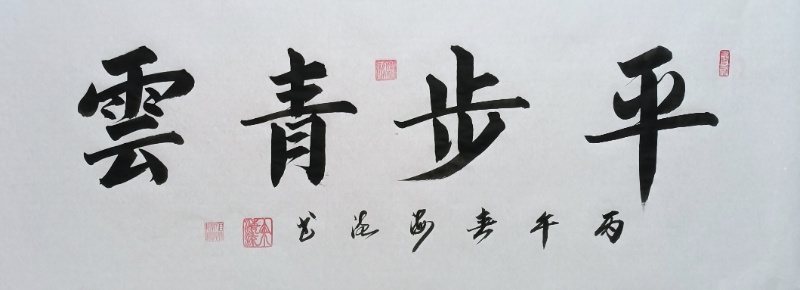 平步青雲
丙午春海滬书